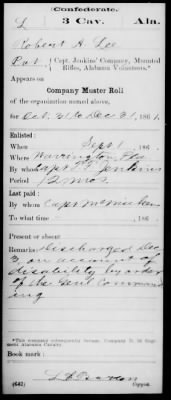 Confederate.
L 3 Cav. Ala.
Robert A. Lee
Pvt. Capt. Jenkins' Company, Mounted
Rifles, Alabama Volunteers.*
Appears on
Company Muster Roll
of the organization named above,
for Oct. 31 to Dec 31, 1861.
Enlisted:
When Sept 1, 186
Where Warrington Fla
By whom Capt Jenkins
Period 12 mos.
Last paid:
By whom Capt
To what time , 186 .
Present or absent
Remarks: Discharged Dec
3, on account of
disability by order
of the Genl Command
ing
*This company subsequently became Company
Alabama Cavalry.
Book mark:
(642) Copyist.